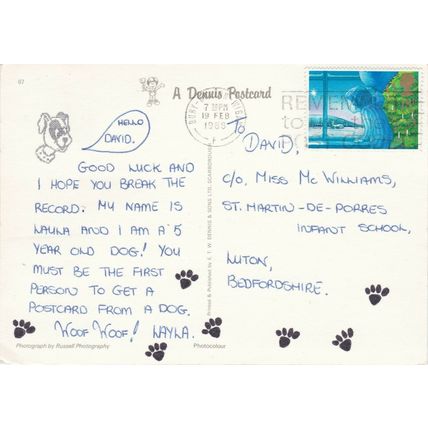 67
A Dennis Postcard
BURY
7 30PM
19 FEB
1989
F
REMEMBER
to
HELLO
DAVID.
To
DAVID,
GOOD LUCK AND
I HOPE YOU BREAK THE
RECORD. MY NAME IS
LAYLA AND I AM A 5
YEAR OLD DOG! YOU
MUST BE THE FIRST
PERSON TO GET A
POSTCARD FROM A DOG.
WOOF WOOF! LAYLA.
Printed & Published by E. T. W. DENNIS & SONS LTD., SCARBOROUGH
c/o. MISS MC WILLIAMS,
ST. MARTIN-DE-PORRES
INFANT SCHOOL,
LUTON,
BEDFORDSHIRE.
Photograph by Russell Photography
Photocolour